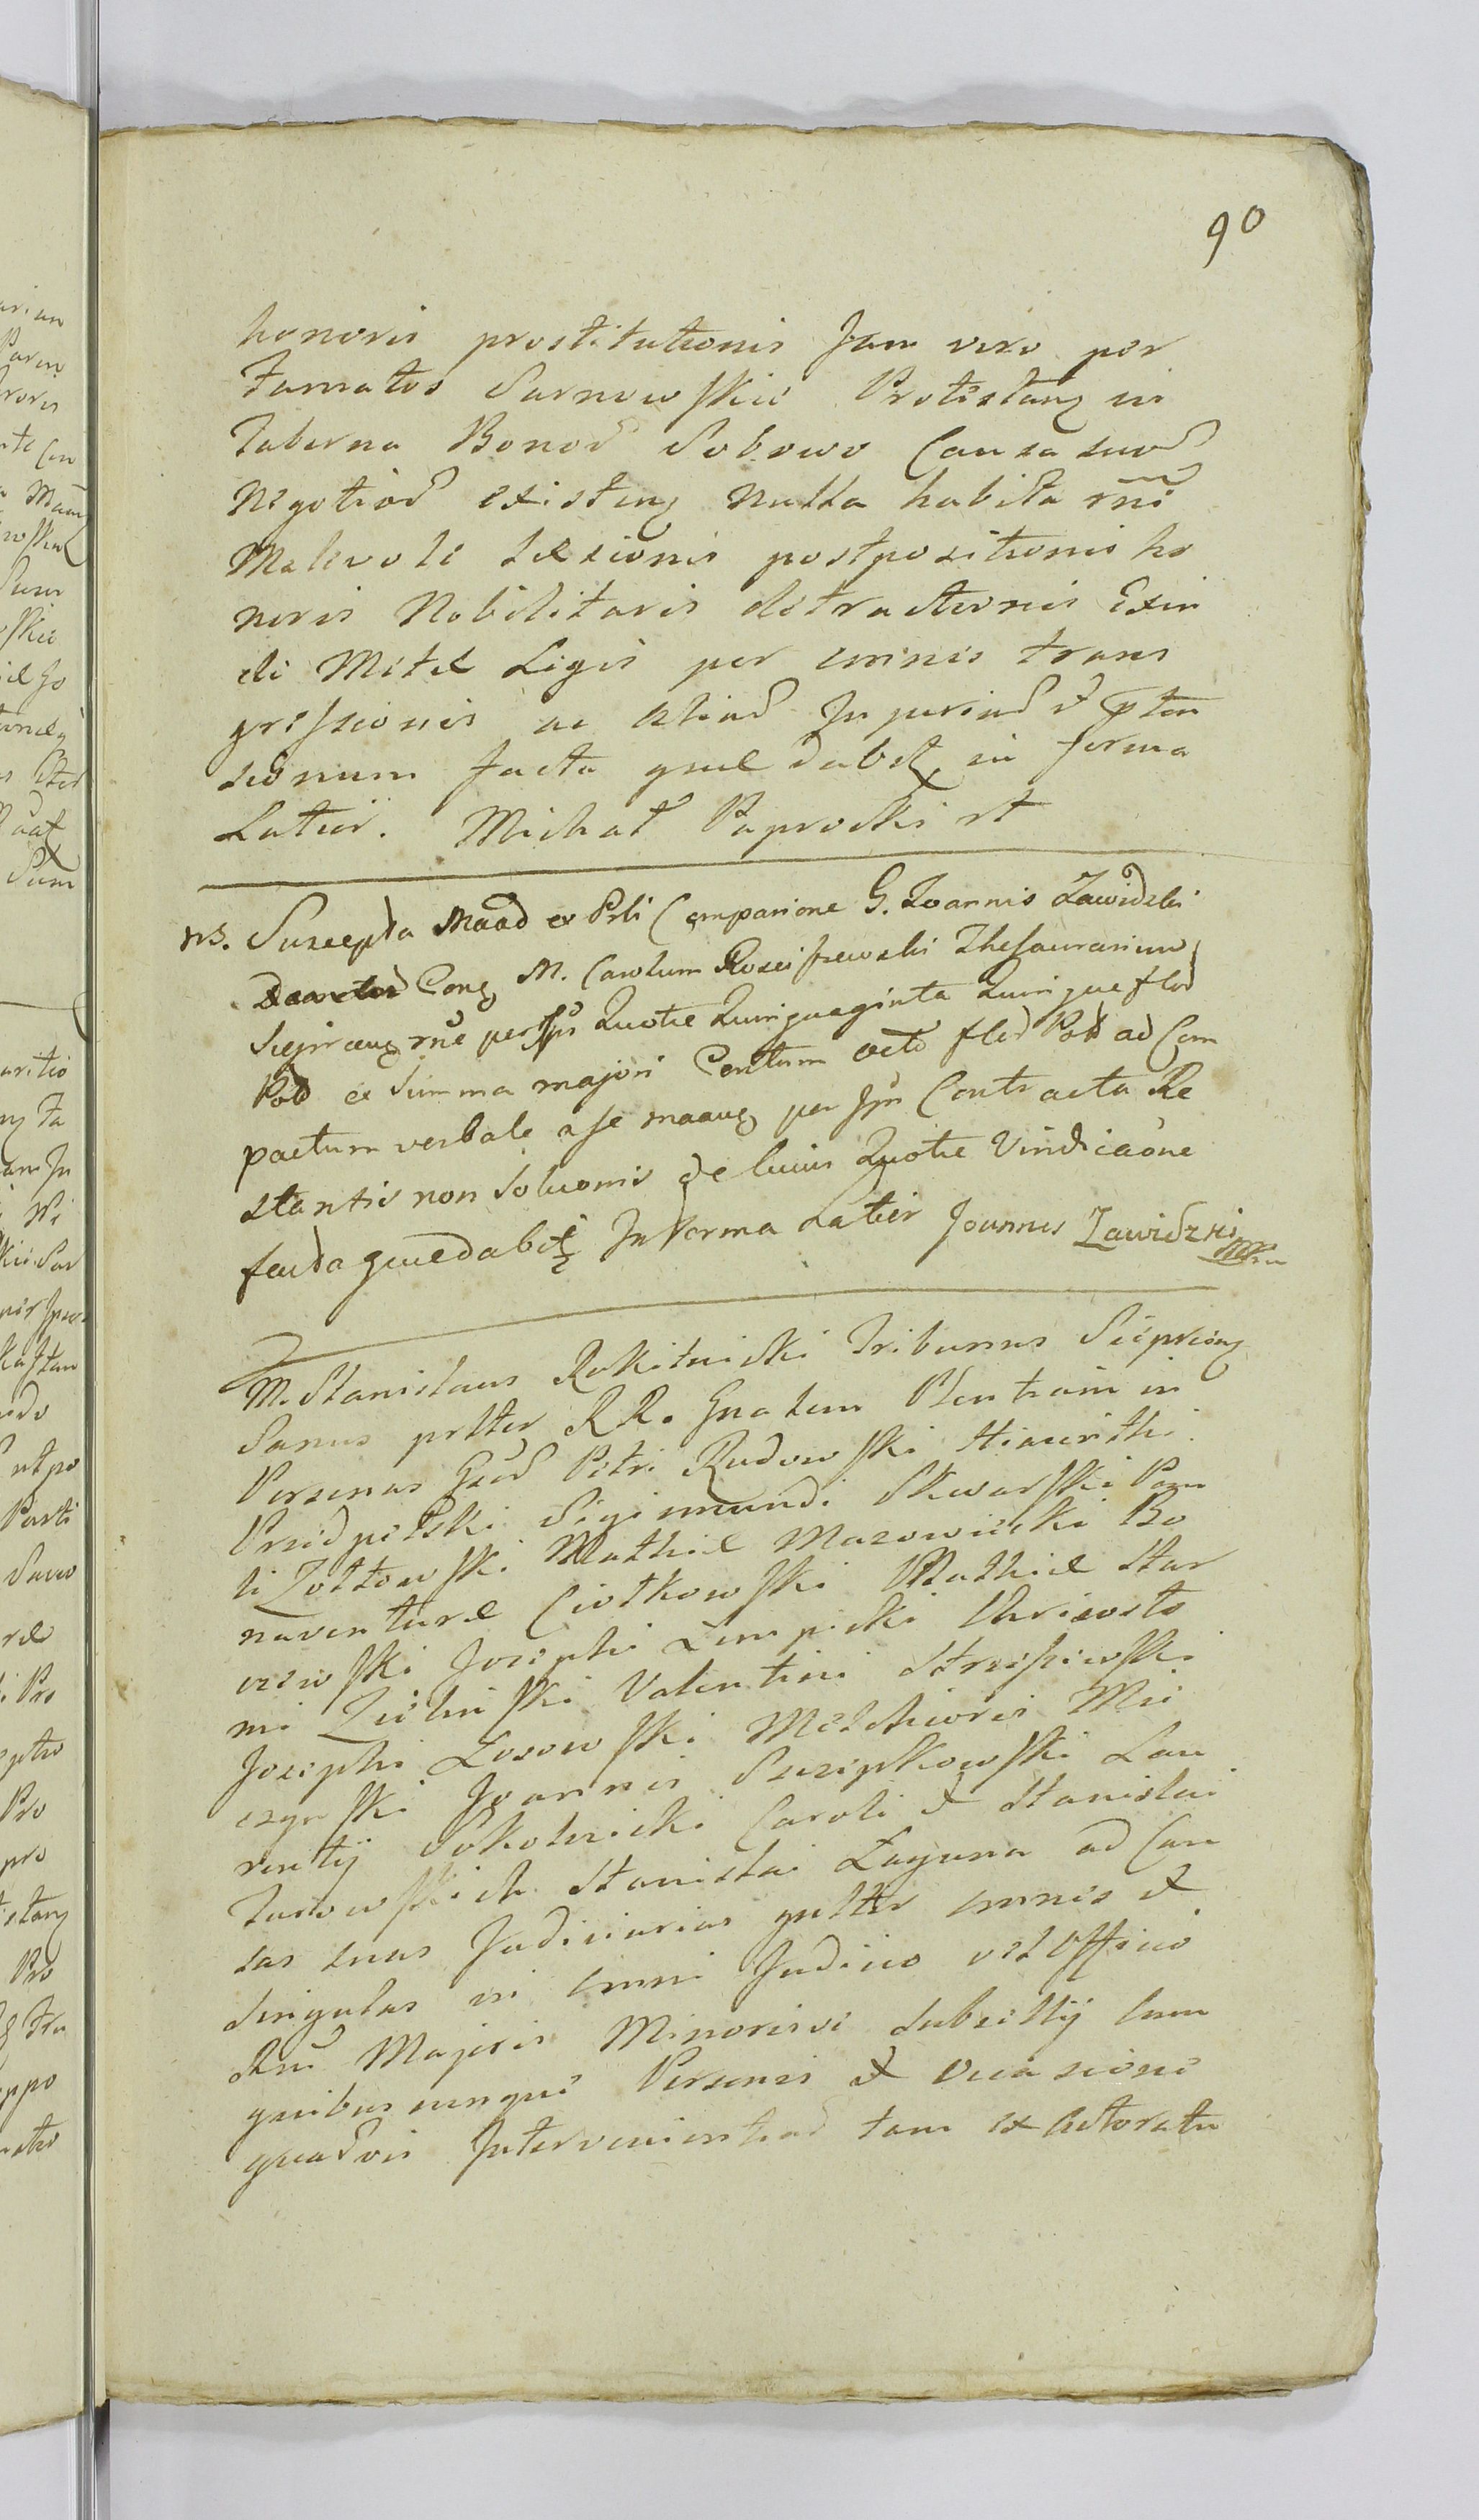 90
honoris prostitutionis Jam vero per
Famatos Sarnowskie Protestang in
Taberna Bonor Sobowo Causa suor
Negotior existeng nulla habita rne
Malevole Lesionis postpositionis ho
noris Nobilitaris detractionis Exin
de Metæ Legis per omnis trans
gressionis ac Alior Injurior et pten
sionum facta quæ dabit in forma
Latior. Michał Paprocki rt
ns. Suscepta Maad ex Prli Comparione G. Joannis Zawidzki
Cong M. Carolum Rosciszewski Thesaurarium
Sieprceng rne per Ipm Quotæ Quinquaginta Quinque flor
Pol ex Summa majori Centum octo flor Pol ad Com
pactum verbale a se maang per Ipm Contracta Re
stantis non Soluonis de cuius Quotæ Vindicaone
facta quæ dabit In forma Latior Joannes Zawidzki mp
M. Stanislaus Rokitnicki Tribunus Siepreceng
Sanus prtter R R. Gnalem Plentiam in
Personas Gsor Petri Rudowski Hiacinthi
Przedpełski Sigismundi Skwarski Pau
li Zołtowski Mathiæ Mazowiecki Bo
naventuræ Ciołkowski Mathiæ Star
czewski Josephi Lempicki Chrisosto
mi Zielinski Valentini Strzeszewski
Josephi Łosowski Melchioris Mie
czynski Joannis Szczepkowski Lau
rentij Sokolnicki Caroli et Stanislai
Turowskich Stanislai Łaguna ad Cau
sas suas Judiciarias gnltter omnes et
Singulas in omni Judicio vel Officio
Rni Majoris Minorisve Subsellij cum
quibuscunque Personis et occasione
quavis Intervenientiad tam ex Actoratu